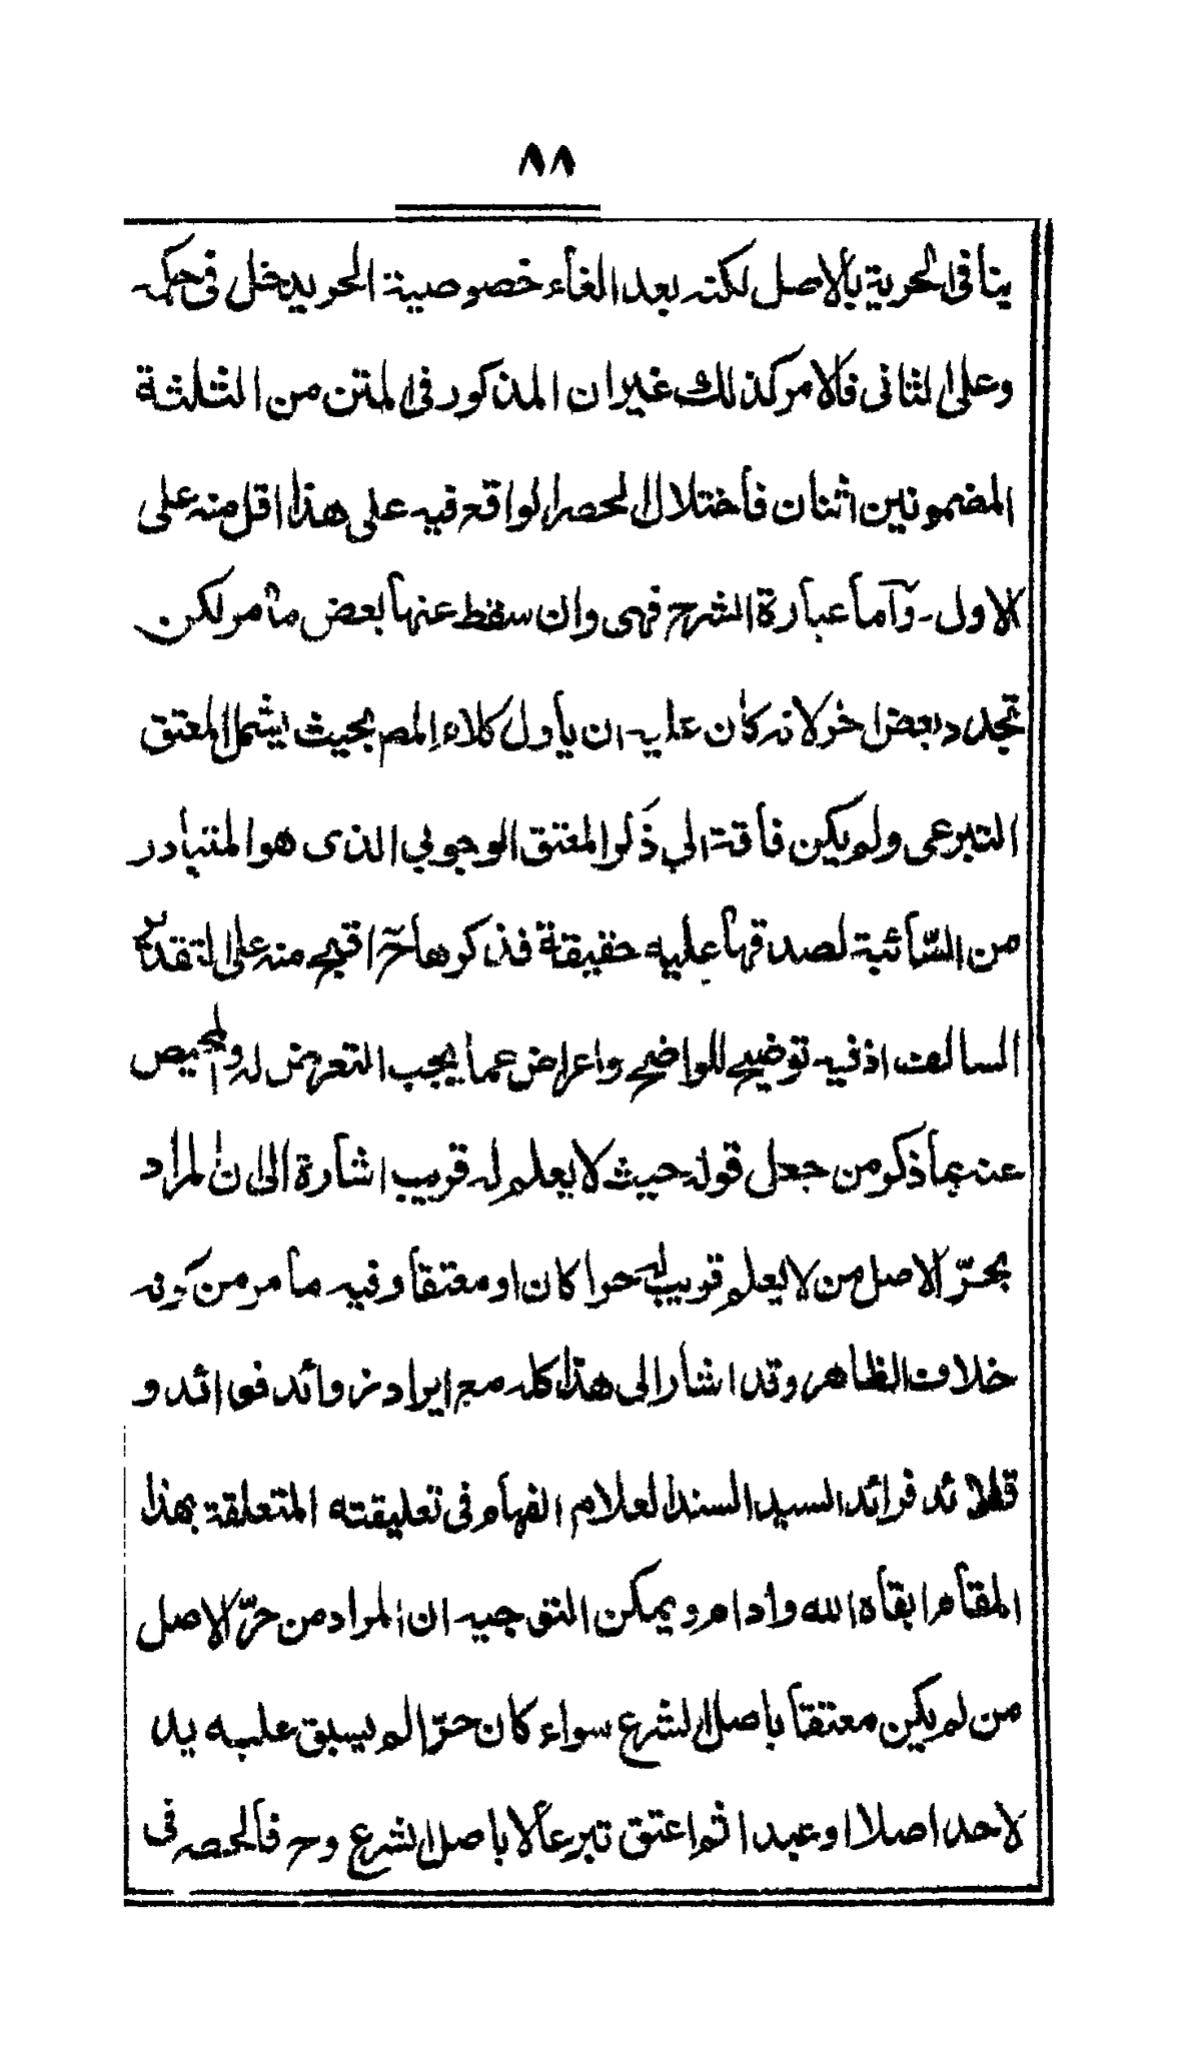 ٨٨
ينافى الحرية بالاصل لكنه بعد الغاء خصوصية الحر يدخل فى حكمه
وعلى الثانى فالامر كذلك غير ان المذكور فى المتن من الثلثة
المضمونين اثنان فاختلال الحصر الواقع فيه على هذا اقل منه على
الاول ـ وآما عبارة الشرح فهى وان سقط عنها بعض ما مر لكن
تجدد بعض اخر لانه كان عليه ان يأول كلام المص بحيث يشمل المعتق
التبرعى ولم يكن فاقة الى ذكر المعتق الوجوبي الذى هو المتبادر
من السّائبة لصدقها عليه حقيقة فذكرها حٓ اقبح منه على التقدير
السالف اذ فيه توضيح للواضح واعراض عما يجب التعرض له والمحيص
عنه بما ذكر من جعل قوله حيث لا يعلم له قريب اشارة الى ان المراد
بحرّ الاصل من لا يعلم قريب له حرا كان او معتقا وفيه ما مر من كونه
خلاف الظاهر وقد اشار الى هذا كله مع ايراد زوائد فوائد و
قلائد فرائد السيد السند العلام الفهام فى تعليقته المتعلقة بهذا
المقام ابقاه الله وادام ويمكن التوجيه ان المراد من حرّ الاصل
من لم يكن معتقا باصل الشرع سواء كان حرّا لم يسبق عليه يد
لاحد اصلا او عبدا ثم اعتق تبرعا لا باصل الشرع وح فالحصر فى